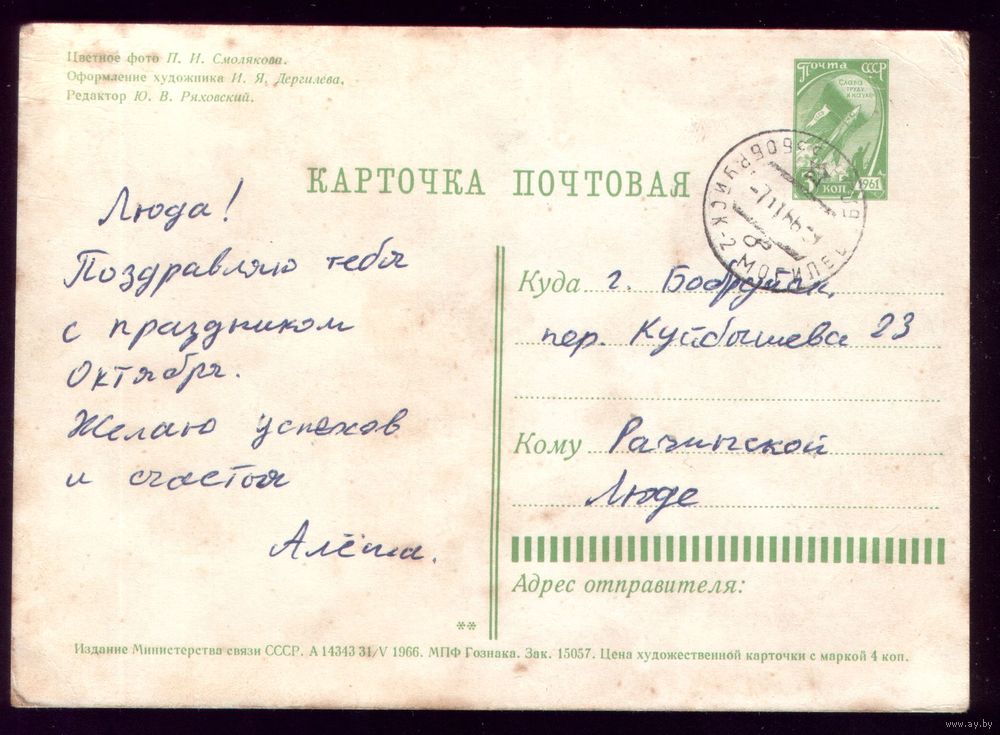 Цветное фото П. И. Смолякова.
Оформление художника И. Я. Дергилева.
Редактор Ю. В. Ряховский.
Почта СССР
Слава
труду
и науке
коп
1961
КАРТОЧКА ПОЧТОВАЯ
Люда!
Поздравляю тебя
с праздником
Октября.
Желаю успехов
и счастья
Алёша.
Куда г. Бобруйск,
пер. Куйбышева 23
Кому Рачинской
Люде
Адрес отправителя:
**
Издание Министерства связи СССР. А 14343 31/V 1966. МПФ Гознака. Зак. 15057. Цена художественной карточки с маркой 4 коп.
www.ay.by